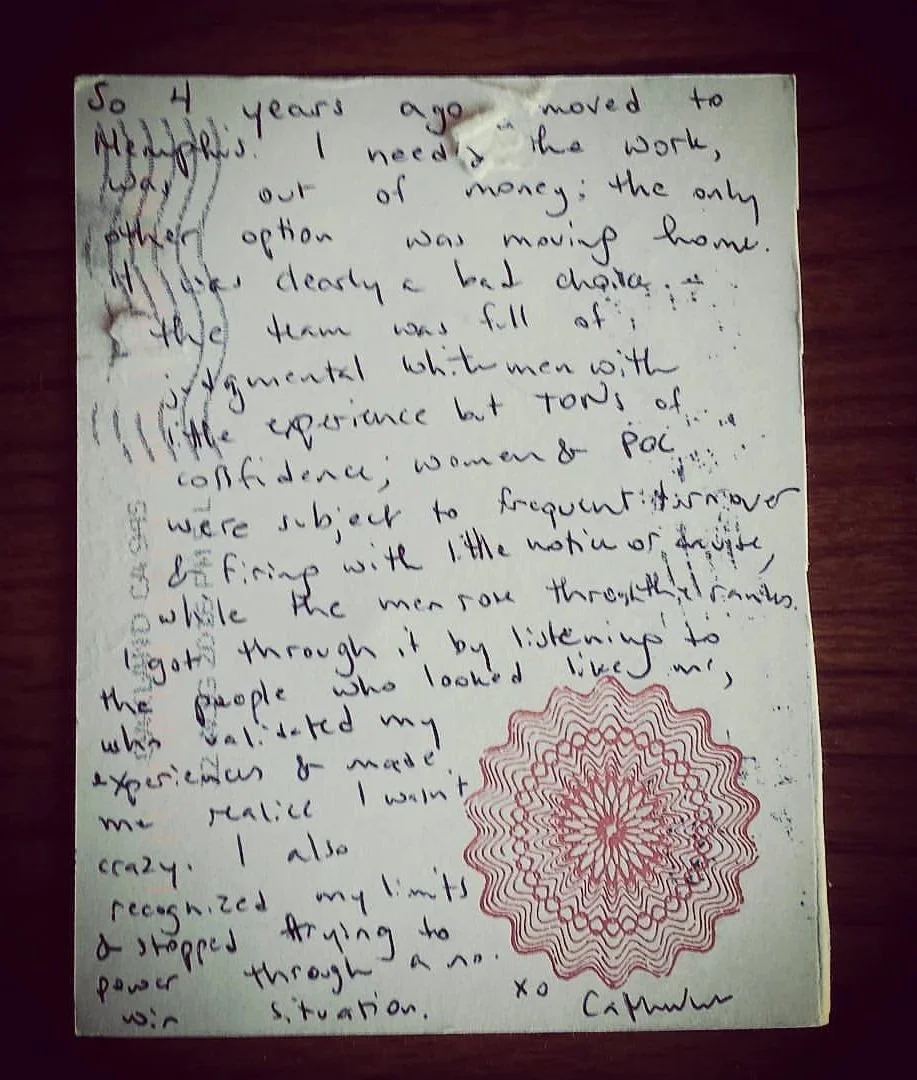 So 4 years ago moved to
Memphis. I needed the work,
was out of money; the only
other option was moving home.
It was clearly a bad choice.
the team was full of
judgmental white men with
little experience but TONS of
confidence; women & POC
were subject to frequent turnover
& firing with little notice or
while the men rose through the ranks.
I got through it by listening to
the people who looked like me,
who validated my
experiences & made
me realize I wasn't
crazy. I also
recognized my limits
& stopped trying to
power through a no-
win situation.
xo
OAKLAND CA 945